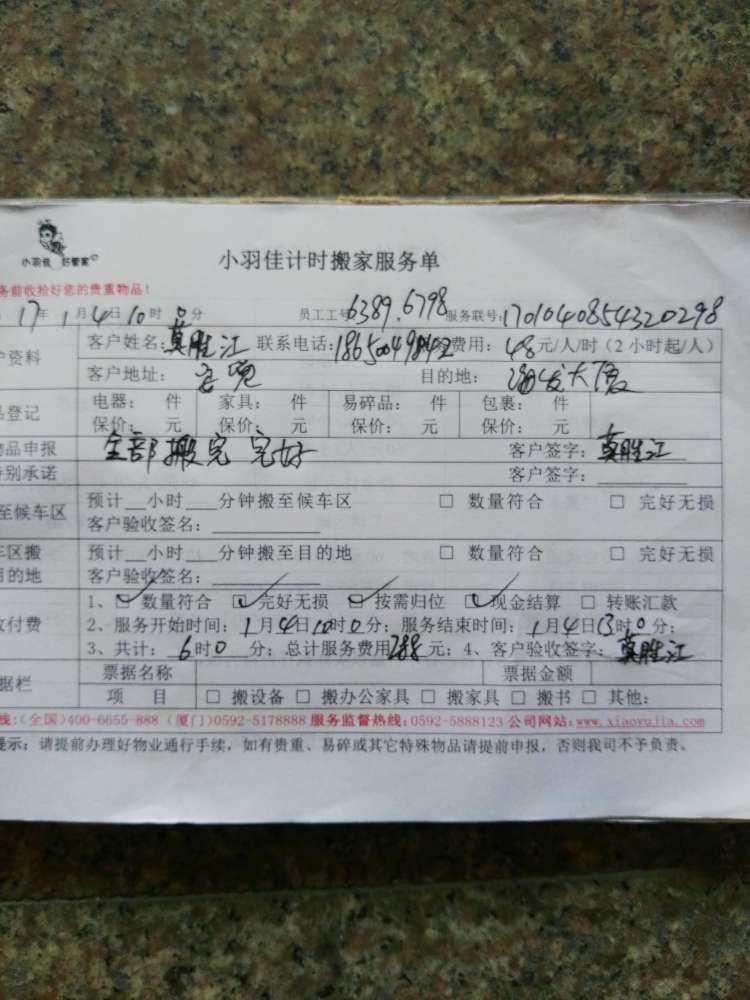 小羽佳 好管家
小羽佳计时搬家服务单
务前收捡好您的贵重物品!
17年1月4日10时0分 员工工号:6389.6798 服务联号:1701040854320298
户资料 客户姓名:莫胜江 联系电话: 费用:48元/人/时(2小时起/人)
客户地址: 目的地:海发大厦
品登记 电器: 件 家具: 件 易碎品: 件 包裹: 件
保价: 元 保价: 元 保价: 元 保价: 元
物品申报 全部搬完 完好 客户签字:莫胜江
特别承诺 客户签字:
至候车区 预计__小时___分钟搬至候车区 □ 数量符合 □ 完好无损
客户验收签名:
车区搬 预计__小时___分钟搬至目的地 □ 数量符合 □ 完好无损
目的地 客户验收签名:
收付费 1、☑数量符合 ☑完好无损 ☑按需归位 ☑现金结算 □ 转账汇款
2、服务开始时间:1月4日10时0分;服务结束时间:1月4日13时0分;
3、共计:6时0分;总计服务费用288元;4、客户验收签字:莫胜江
据栏 票据名称 票据金额
项 目 □ 搬设备 □ 搬办公家具 □ 搬家具 □ 搬书 □ 其他:
线:(全国)400-6655-888 (厦门)0592-5178888 服务监督热线:0592-5888123 公司网站:www.xiaoyujia.com
提示:请提前办理好物业通行手续,如有贵重、易碎或其它特殊物品请提前申报,否则我司不予负责。